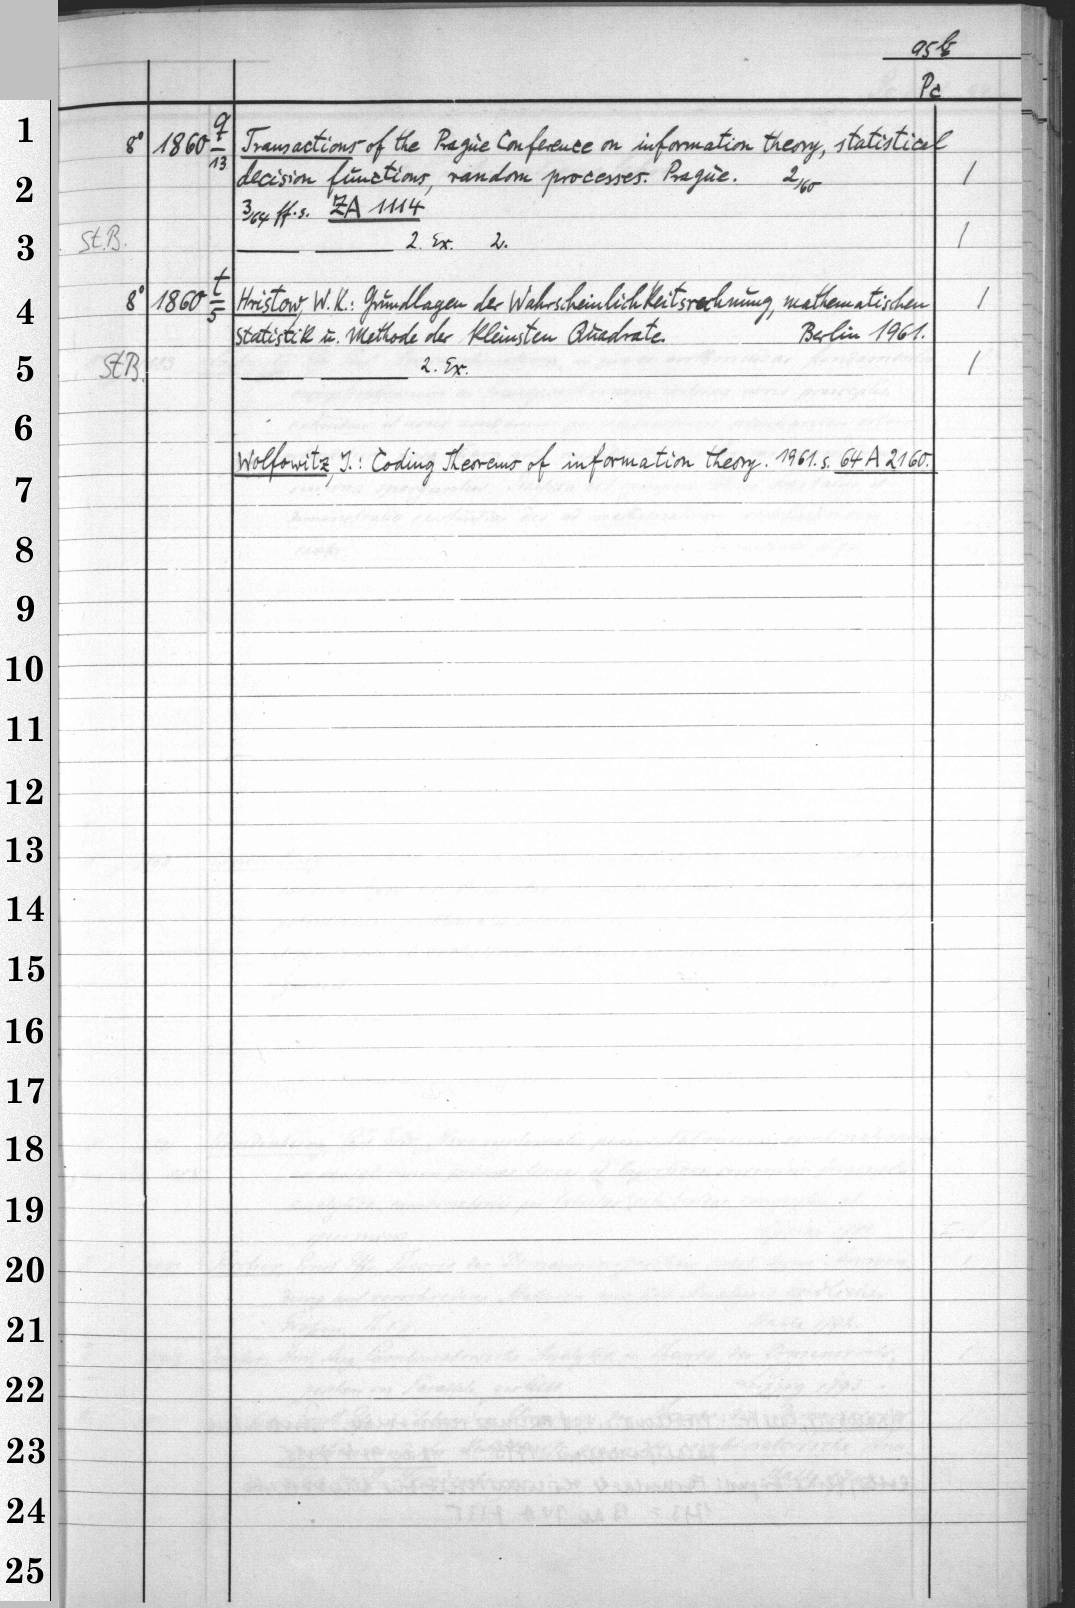 95b
Pc
8° 1860 q/13 Transactions of the Prague Conference on information theory, statistical
decision functions, random processes. Prague. 2/60 1
3/64 ff. s. ZA 1114
St.B. —— —— 2. Ex. 2. 1
8° 1860 t/5 Hristow, W. K.: Grundlagen der Wahrscheinlichkeitsrechnung, mathematischen 1
Statistik u. Methode der kleinsten Quadrate. Berlin 1961.
StB. —— —— 2. Ex. 1
Wolfowitz, J.: Coding Theorems of information theory. 1961. s. 64 A 2160.
1
2
3
4
5
6
7
8
9
10
11
12
13
14
15
16
17
18
19
20
21
22
23
24
25